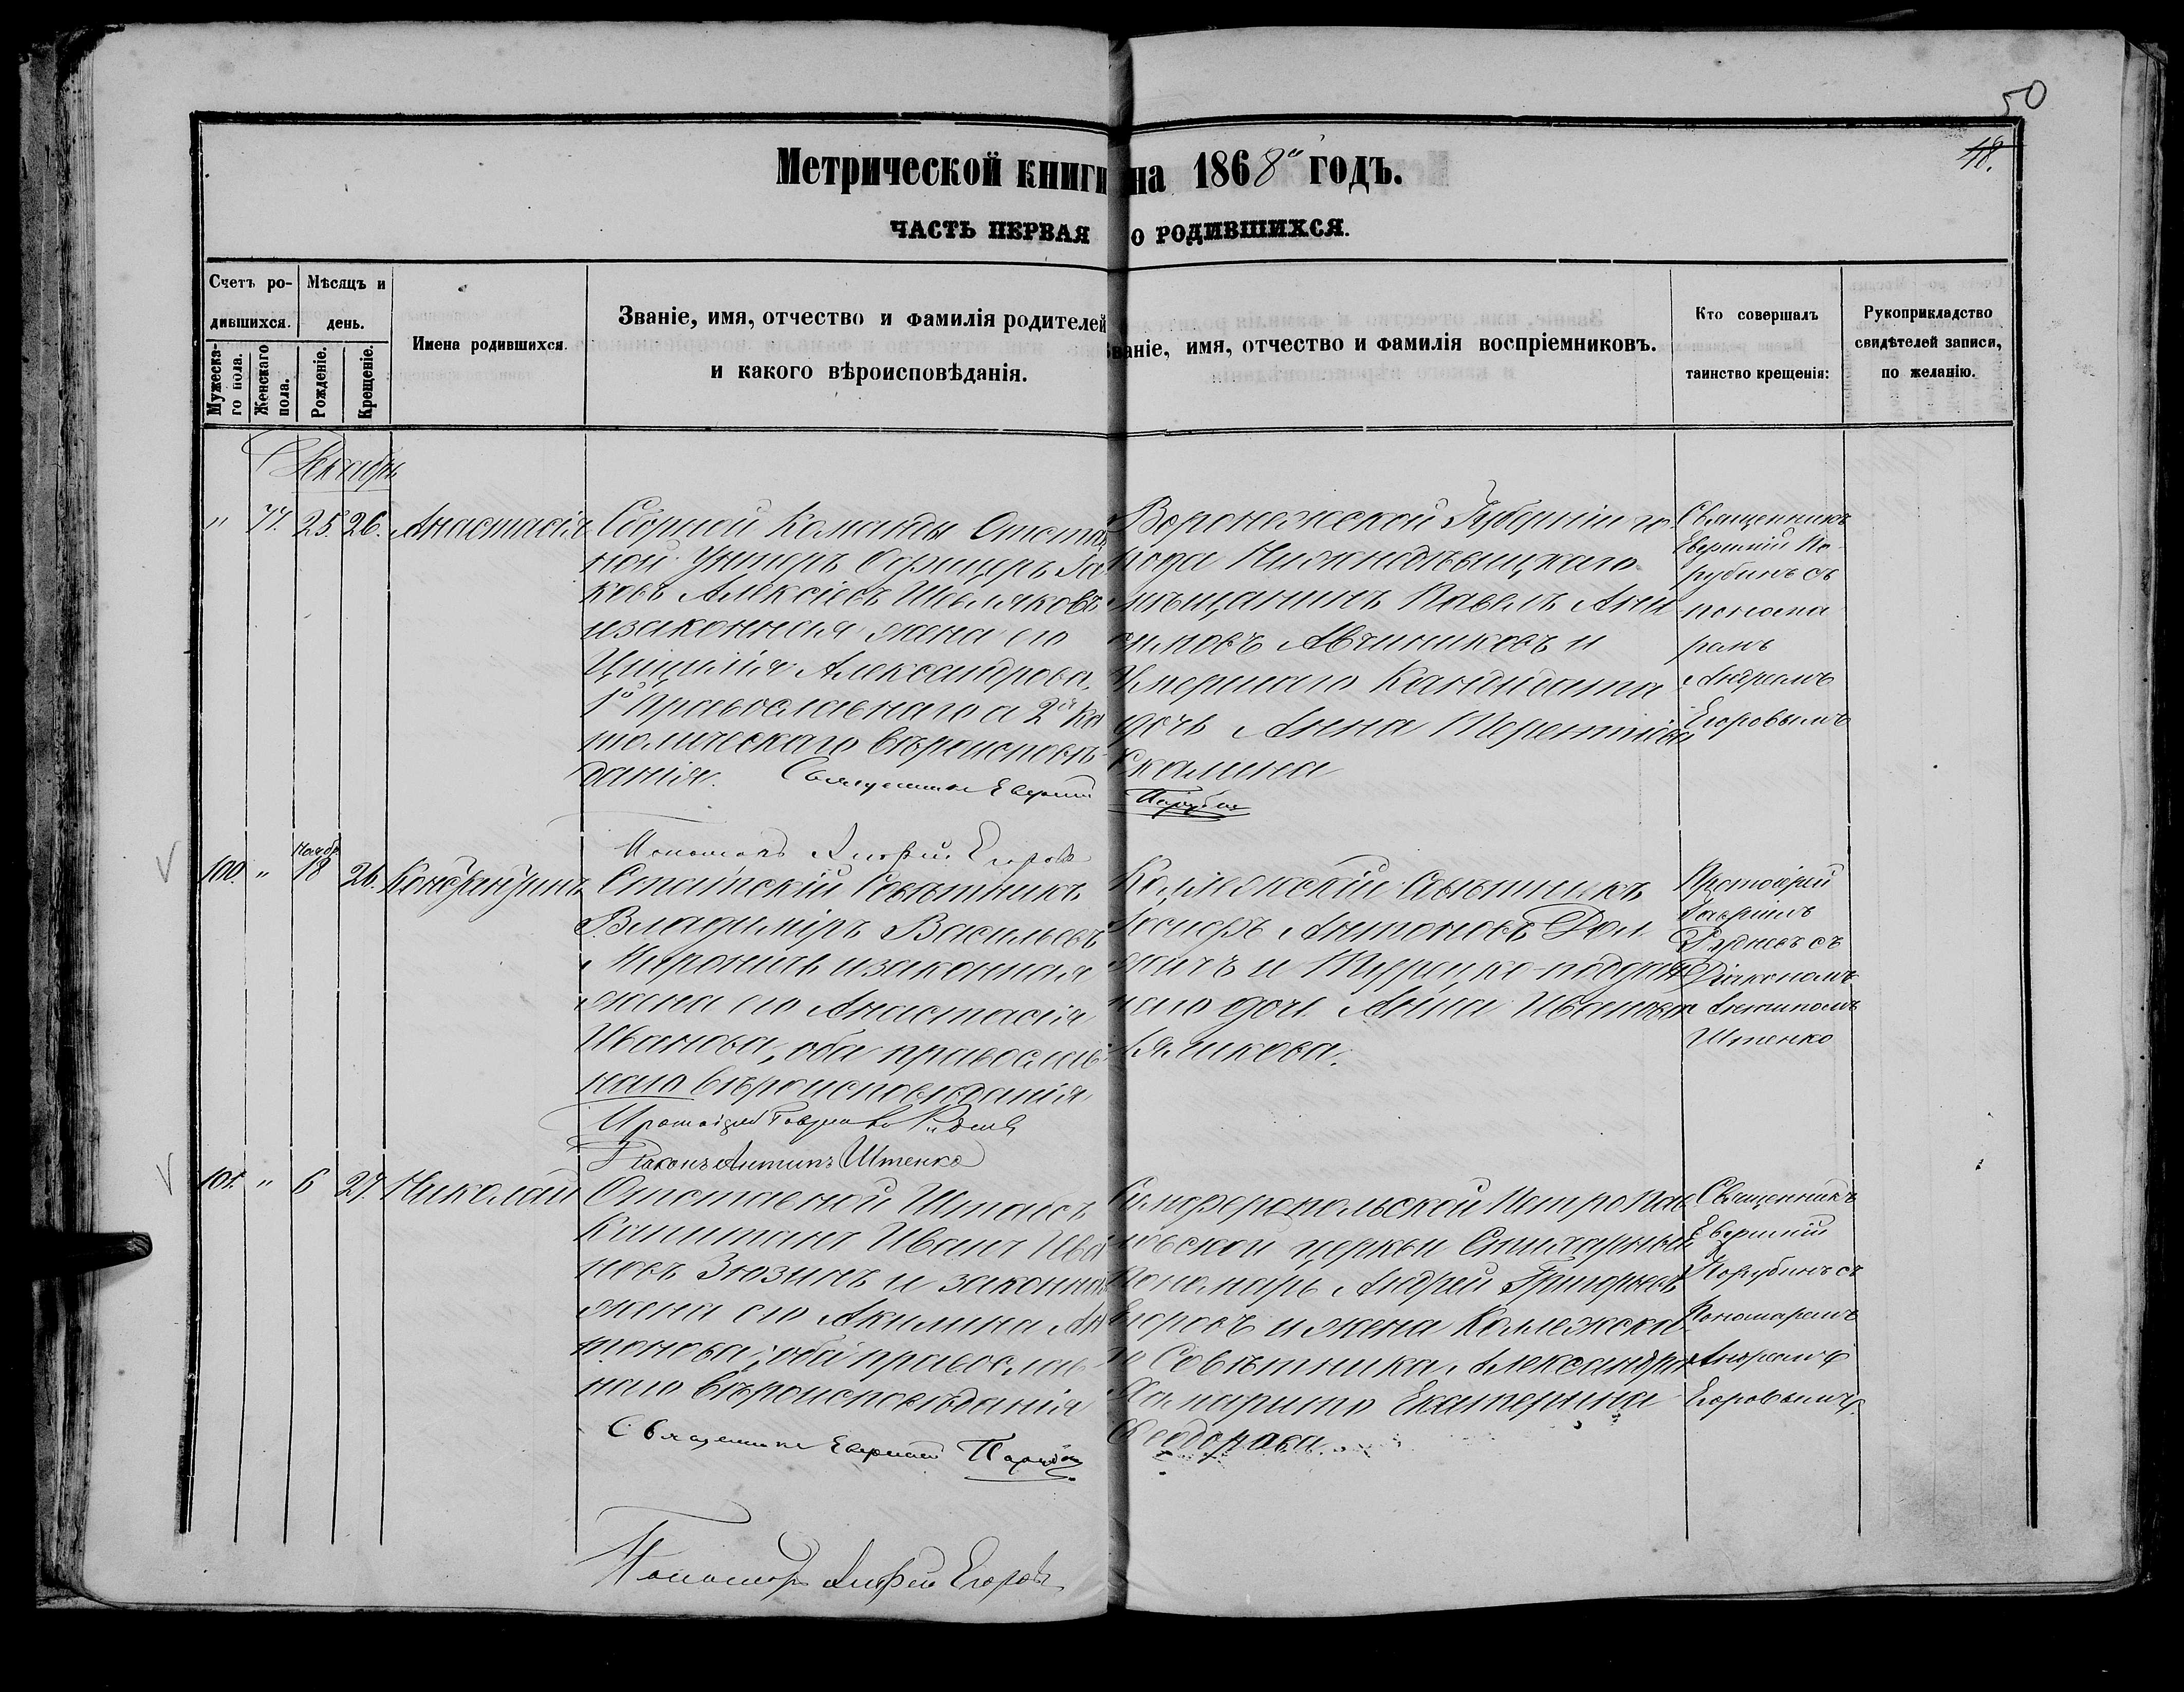 50
48.
Метрической книги на 1868й годъ.
ЧАСТЬ ПЕРВАЯ О РОДИВШИХСЯ.
Счетъ ро-
дившихся.
Мужеска-
го пола.
Женскаго
пола.
Мѣсяцъ и
день.
Рожденіе.
Крещеніе.
Имена родившихся.
Званіе, имя, отчество и фамилія родителей
и какого вѣроисповѣданія.
Званіе, имя, отчество и фамилія воспріемниковъ.
Кто совершалъ
таинство крещенія:
Рукоприкладство
свидѣтелей записи,
по желанію.
Декабрь
" 77. 25. 26. Анастасія
Сборной Команды Отстав
ной Унтеръ Офицеръ Іа
ковъ Алексіевъ Шевляковъ
и законная жена его
Цицилія Александрова,
1й Православнаго а 2я Ка
толическаго вѣроисповѣ
данія.
Священникъ Евгеній
Пономарь Андрей Егоровъ
Воронежской Губерніи го
рода Нижнедѣвицкаго
мѣщанинъ Павелъ Ани
симовъ Авчинниковъ и
Умершаго Кандидата
дочь Анна Терентіева
Скалина
Священникъ
Евгеній
съ
понома
ремъ
Андреемъ
Егоровымъ
100. " Ноябр. 18 26. Константинъ
Статскій Совѣтникъ
Владиміръ Васильевъ
Миронич и законная
жена его Анастасія
Иванова, оба православ
наго вѣроисповѣданія
Протоіерей Гавріилъ Рудневъ
Діаконъ Антипъ Штенко
Коллежскій Совѣтникъ
Іосифъ Антоновъ Дол
жичъ и Турецко-поддан
наго дочь Анна Иванова
Протоіерей
Гавріилъ
Рудневъ съ
Діакономъ
Антипомъ
Штенко
101. " 6 27. Николай
Отставной Штабсъ
Капитанъ Иванъ Ива
новъ Зюзинъ и законная
жена его Акилина Ан
тонова, оба православ
наго вѣроисповѣданія
Священникъ Евгеній
Пономарь Андрей Егоровъ
Симферопольской Петропав
ловской церкви Стихарный
Пономарь Андрей Григорьевъ
Егоровъ и жена Коллежска
го Совѣтника Александра
Екатерина
Ѳеодорова.
Священникъ
Евгеній
съ
Пономаремъ
Андреемъ
Егоровымъ.